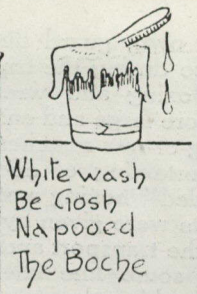 White wash
Be Gosh
Napooed
The Boche